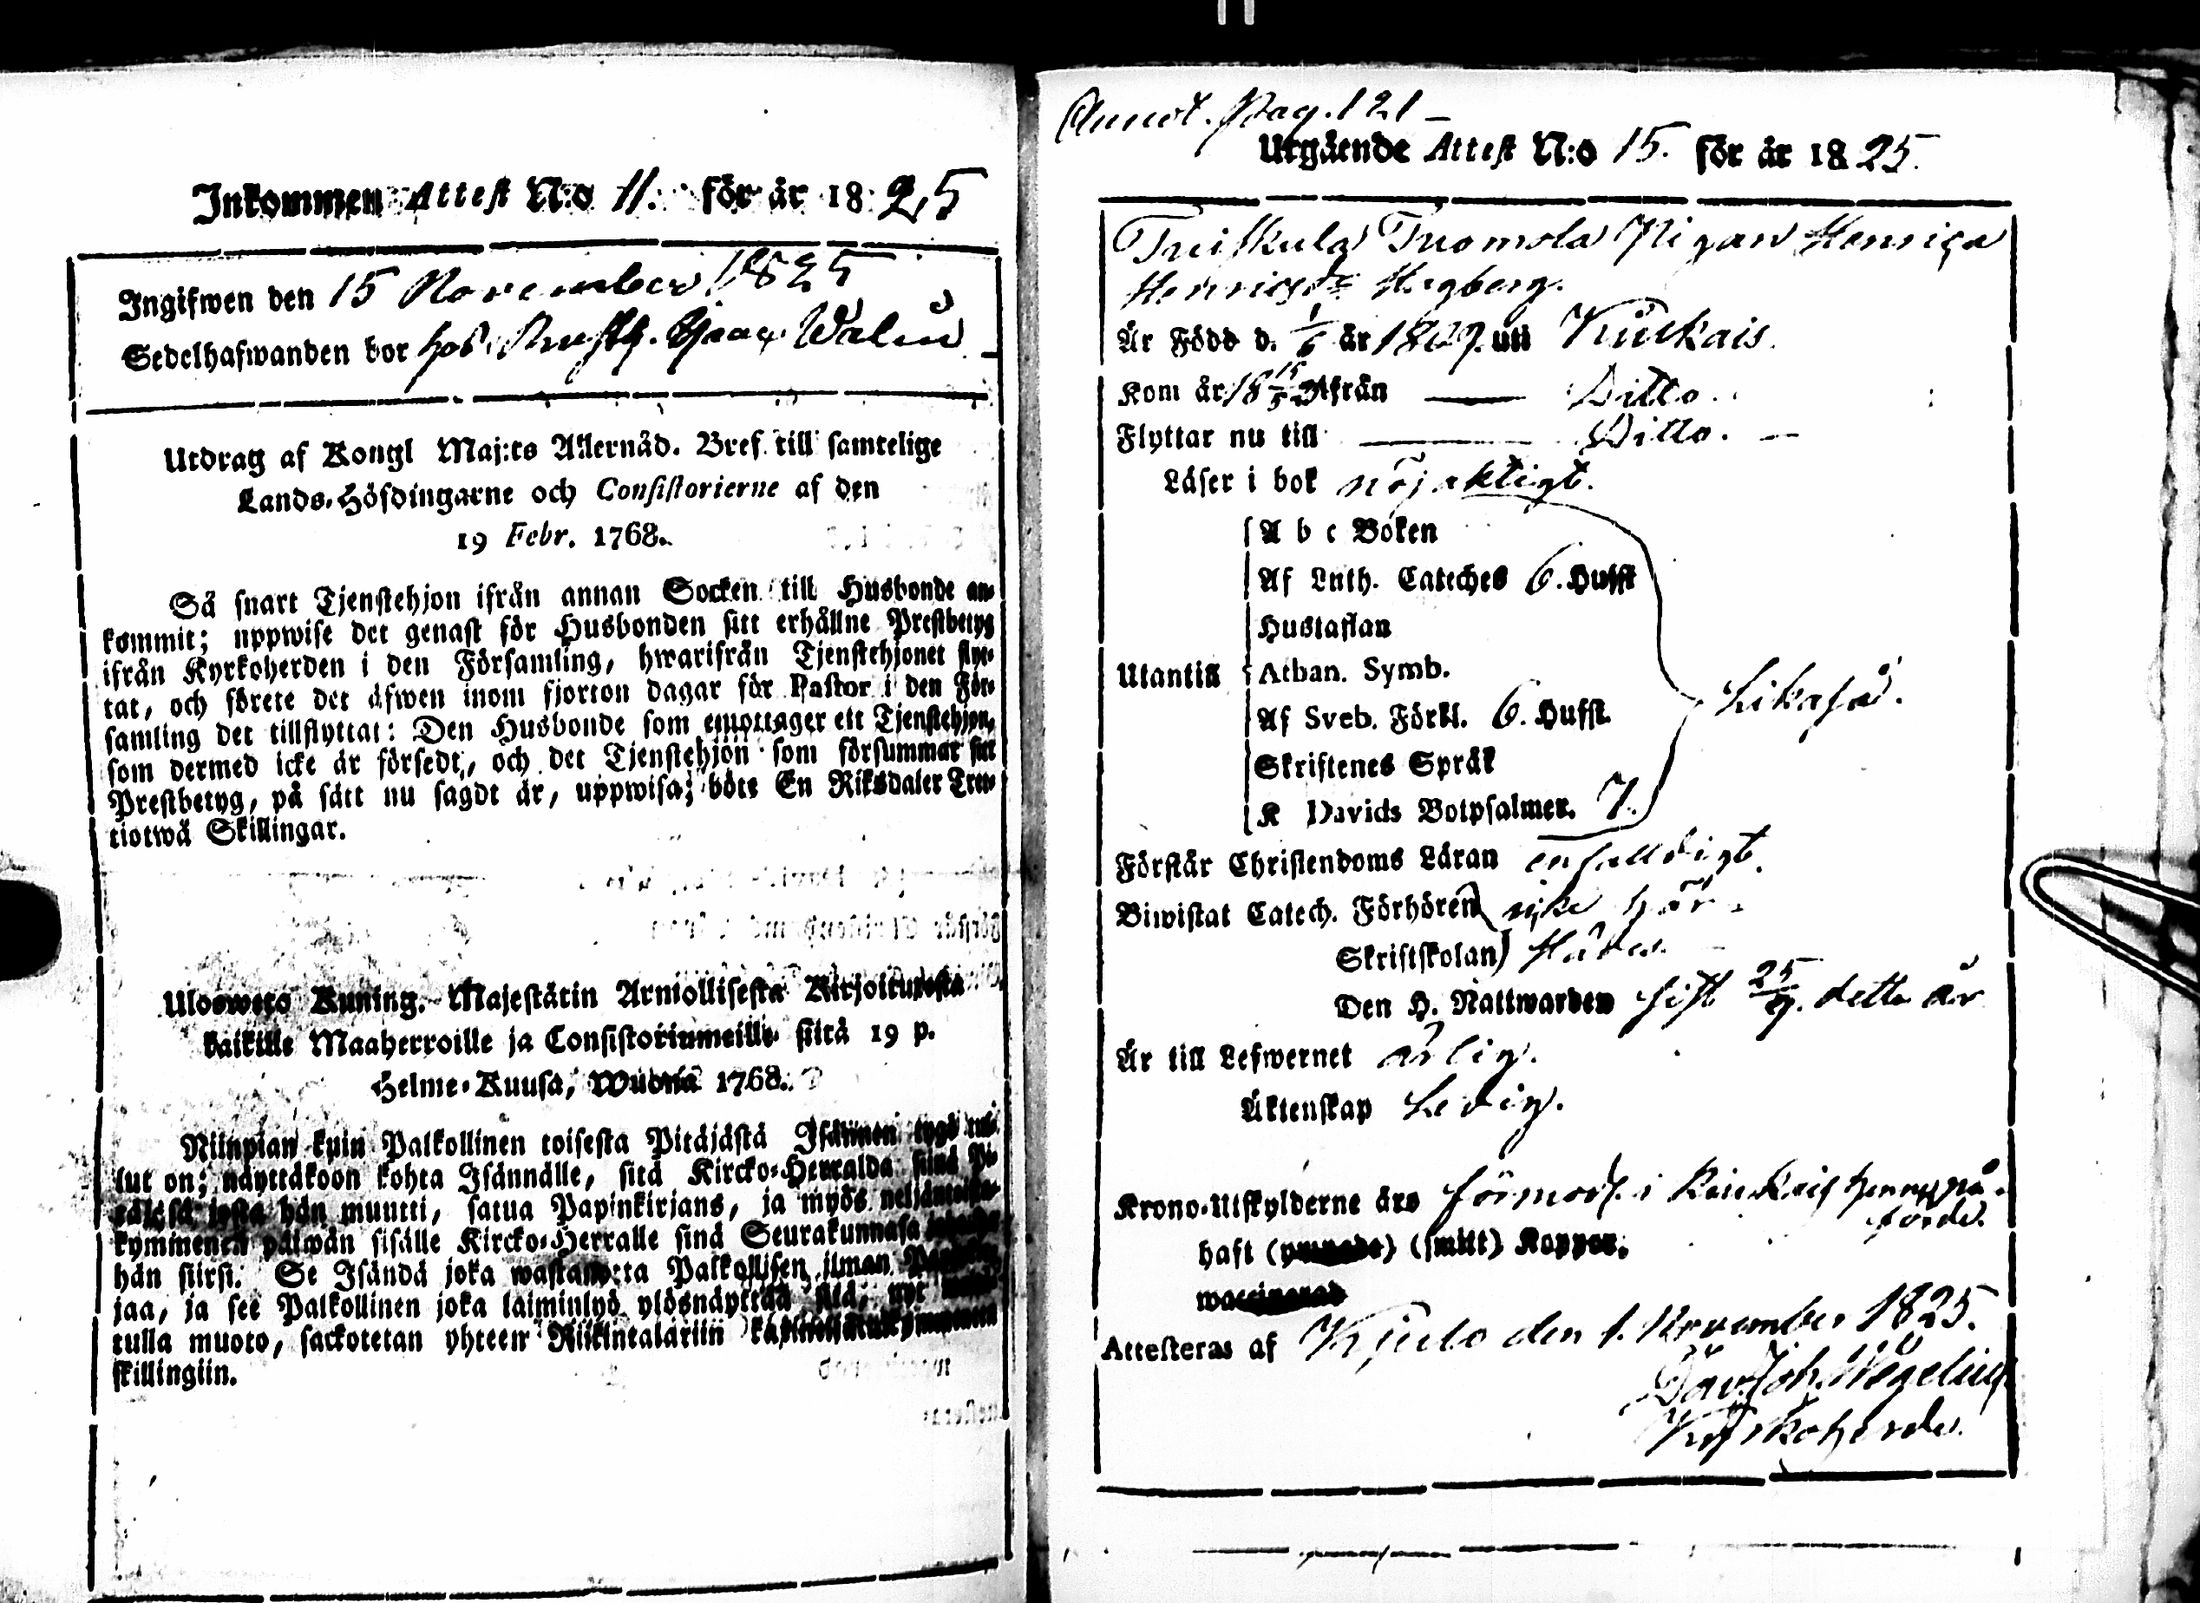 Inkommen Attest N:o 11. för år 1825
Ingifwen den 15 November 1825
Sedelhafwanden bor hos Walin
Utdrag af Kongl Maj:ts Allernåd. Bref till samtelige
Lands-Höfdingarne och Consistorierne af den
19 Febr. 1768.
Så snart Tjenstehjon ifrån annan Socken till Husbonde an-
kommit; uppwise det genast för Husbonden sitt erhållne Prestbetyg
ifrån Kyrkoherden i den Församling, hwarifrån Tjenstehjonet flyt-
tat, och förete det äfwen inom fjorton dagar för Pastor i den För-
samling det tillflyttat: Den Husbonde som emottager ett Tjenstehjon,
som dermed icke är försedt, och det Tjenstehjon som försummar sitt
Prestbetyg, på sätt nu sagdt är, uppwisa; böte En Riksdaler Tret-
tiotwå Skillingar.
Uloswets Kuning. Majestätin Armollisesta Kirjoituxesta
kaikille Maaherroille ja Consistoriumeille siitä 19 p.
Helme-Kuusa, Wuonna 1768.
Niinpian kuin Palkollinen toisesta Pitäjästä Isännen tygö tul-
lut on; näyttäkoon kohta Isännälle, sitä Kircko-Herralda siinä Pi-
täjäsä josta hän muutti, saatua Papinkirjans, ja myös neljäntoista-
kymmenen päiwän sisälle Kircko-Herralle sinä Seurakunnasa johonga
hän siirsi. Se Isändä joka wastanotta Palkollisen ilman
jaa, ja see Palkollinen joka laiminlyö ylösnäyttää sitä, nyt
tulla muoto, sackotetan yhteen Riikintalariin
skillingiin.
Annot. Pag. 121 –
Utgående Attest N:o 15. för år 1825.
Tuiskula Tuomola Pigan Henrica
Henricsdr Hagberg.
Är Född d. 1/6 år 1807. uti Kiukais.
Kom år 18 ifrån — Ditto.
Flyttar nu till — Ditto. –
Läser i bok nöjaktigt.
A b c Boken
Af Luth. Cateches 6. Hufst
Hustaflan
Utantill Athan. Symb. Likaså.
Af Sveb. Förkl. 6. Hufst.
Skriftenes Språk
K Davids Botpsalmer. 7.
Förstår Christendoms Läran enfalldigt.
Biwistat Catech. Förhören icke här –
Skriftskolan)
Den H. Nattwarden sist 25/9. detta år
Är till Lefwernet ärlig.
Äktenskap Ledig.
Krono-Utskylderne äro förmodl. i Kiukais henne på-
förde.
haft (smitt) Koppor.
Attesteras af Kjulo den 1. November 1825.
Dav. Joh. Wegelius
Kyrkoherde.